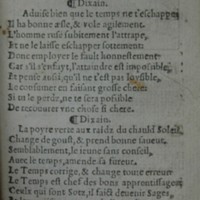 ¶Dixain.
Aduise bien que le temps ne t'eschappe
Il ha bonne æsle, & vole agilement.
L'homme rusé subitement l'attrape,
Et ne le laisse eschapper sottement:
Donc employer le fault honnestement
Car s'il s'enfuyt, l'attendre est impossible,
Et pense aussi, qu'il ne t'est pas
Le consumer en faisant grosse chere:
Si tu le perdz, ne te sera possible
De recouurer vne chose si chere.
¶Dixain.
La poyre verte aux raidz du chauld Soleil
Change de goust, & prend bonne saueur.
Semblablement, le ieune sans conseil,
Auec le temps, amende sa fureur.
Le Temps corrige, & change toute erreur
Le Temps est chef des bons apprentissages
Ceulx qui sont Sotz, il faict deuenir Sages,